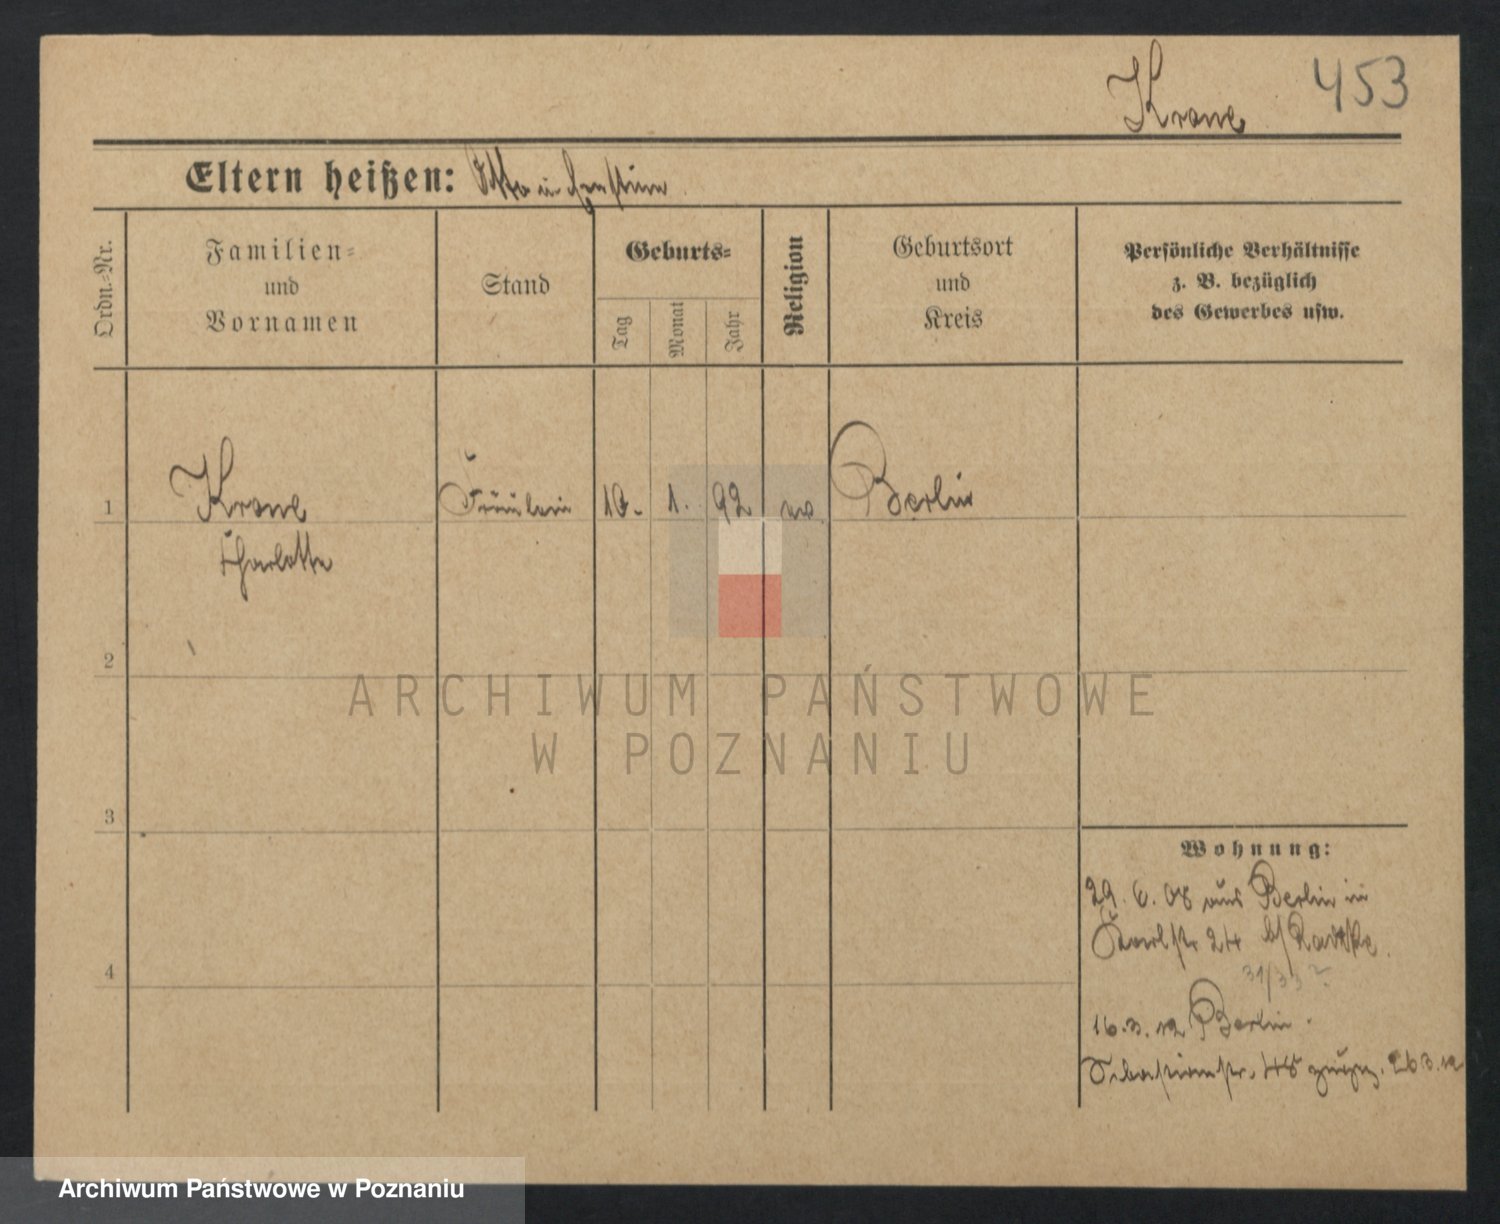 Krone 453
Eltern heißen: Otto u Ernstine
Ordn.-Nr.
Familien-
und
Vornamen
Stand
Geburts-
Tag
Monat
Jahr
Religion
Geburtsort
und
Kreis
Persönliche Verhältnisse
z. B. bezüglich
des Gewerbes usw.
1 Krone Fräulein 10. 1. 92 ev. Berlin
Charlotte
2
ARCHIWUM PAŃSTWOWE
W POZNANIU
3
Wohnung:
29. 6. 08 aus Berlin in
Karlstr 24 b/ Radtke.
4
31/33
16.3.12 Berlin.
Sebastianstr. 48 26 3.12
Archiwum Państwowe w Poznaniu